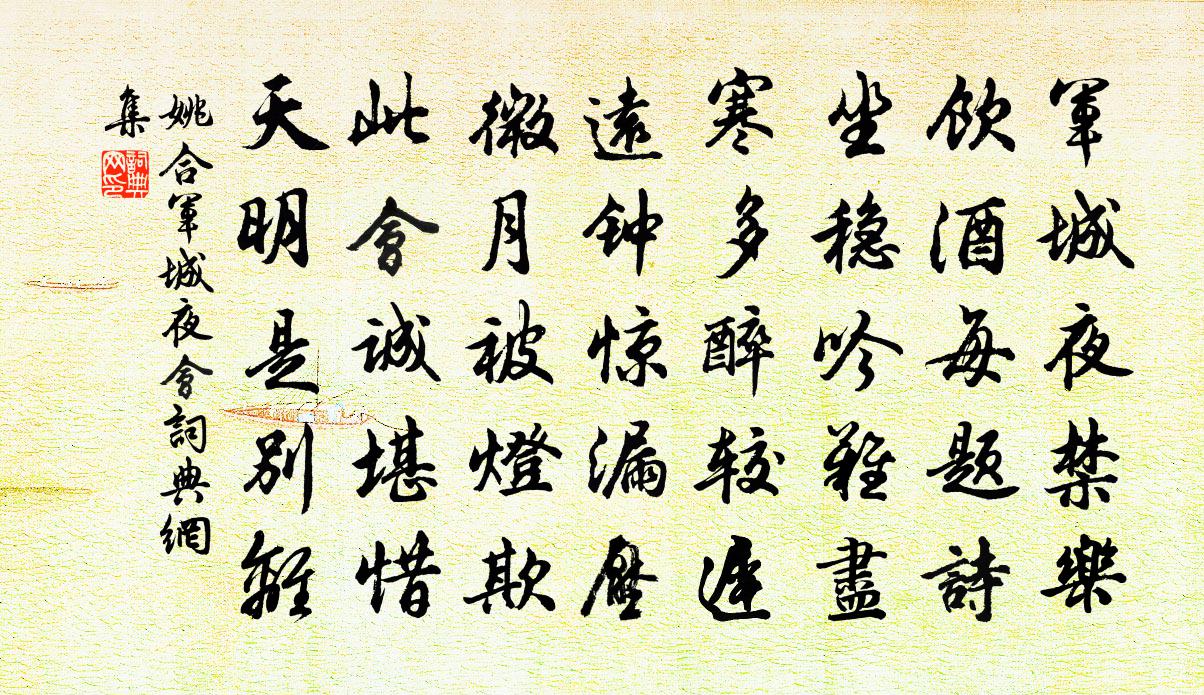 軍城夜禁樂
飲酒每题詩
坐穏吟難盡
寒多醉较遲
遠钟惊漏壓
微月被燈欺
此會誠堪惜
天明是別離
姚合軍城夜會詞典網
集
詞典
网印